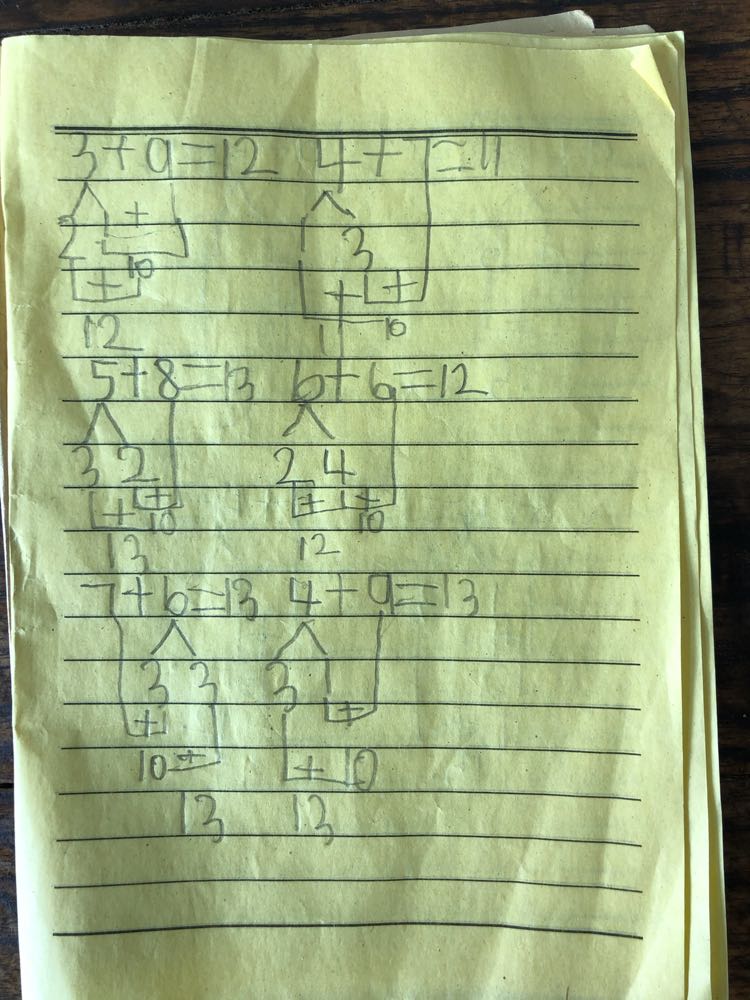 3+9=12 4+7=11
+
2 1 3
10
+ + +
12 11 10
5+8=13 6+6=12
3 2 2 4
+ + + +
10 10
13 12
7+6=13 4+9=13
3 3 3 1
+ +
10 + + 10
13 13